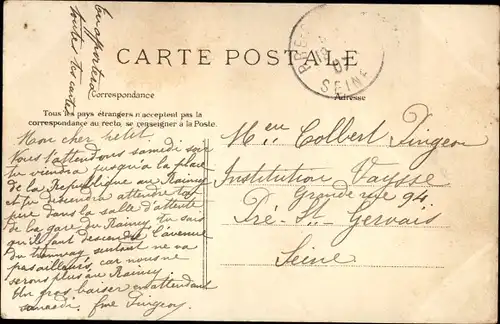 Tu apportera
toutes tes cartes
CARTE POSTALE
07
SEINE
Correspondance
Adresse
Tous les pays étrangers n'acceptent pas la
correspondance au recto, se renseigner à la Poste.
Mon cher petit.
Nous t'attendons samedi soir
tu viendra jusqu'a la place
de la République au Raincy
et tu descendra attendre ta
dans la salle d'attente
de la gare du Raincy, tu sais
qu'il faut descendre l'avenue
du tramway surtout ne va
pas ailleurs, car nous ne
serons plus au Raincy
Un gros baiser en attendant
samedi. fme Pingeon
Colbert Pingeon
Institution Vaysse
Grande rue 94.
Pré-St-Gervais
Seine